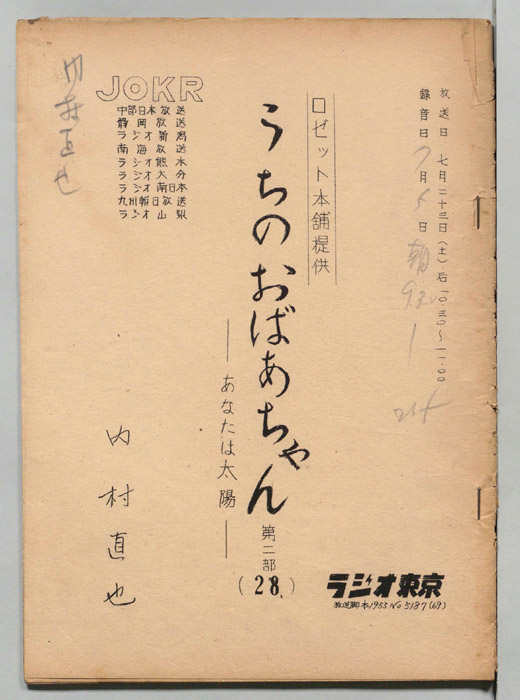 放送日 七月二十三日(土)后一〇.三〇~一一.〇〇
録音日 7月5日 朝
ロゼット本舗提供
うちのおばあちゃん
第二部
(28.)
——あなたは太陽——
内村直也
JOKR
中部日本放送
静岡放送
ラジオ新潟
南海放送
ラジオ熊本
ラジオ大分
ラジオ南日本
九州朝日放送
ラジオ山梨
内村直也
ラジオ東京
放送脚本1955 No 5187(69)